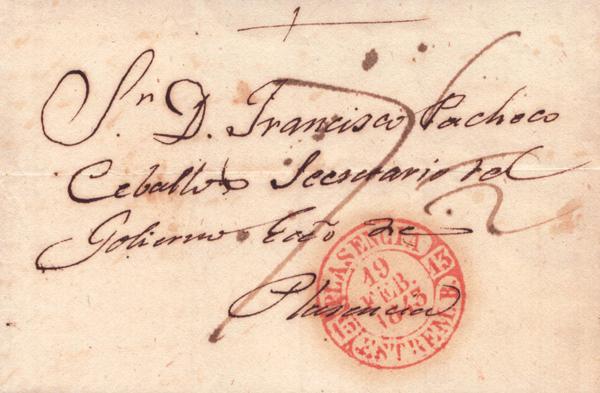 Sr. D. Francisco Pacheco
Ceballos Secretario del
Gobierno Ecco de
Plasencia
7
PLASENCIA
19
FEB.
1843
13
13
ESTREM. B